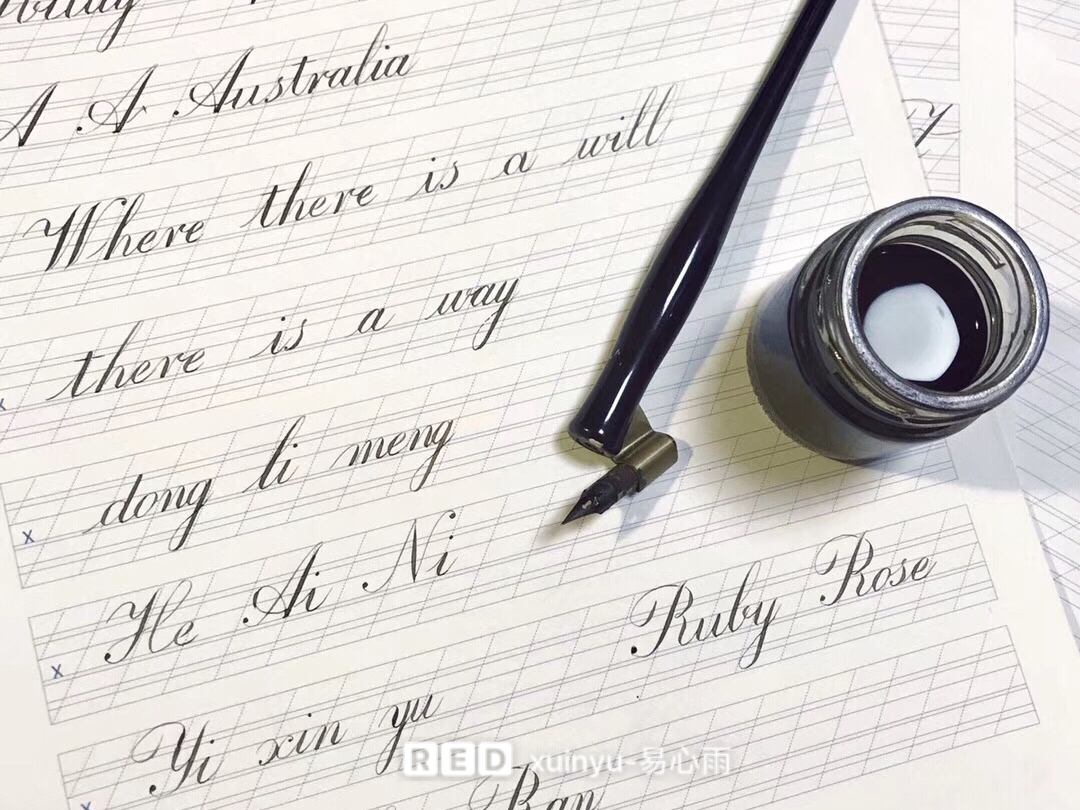 A A Australia
Where there is a will
there is a way
dong li meng
He Ai Ni
Ruby Rose
Yi xin yu
Ran
RED xuinyu-易心雨